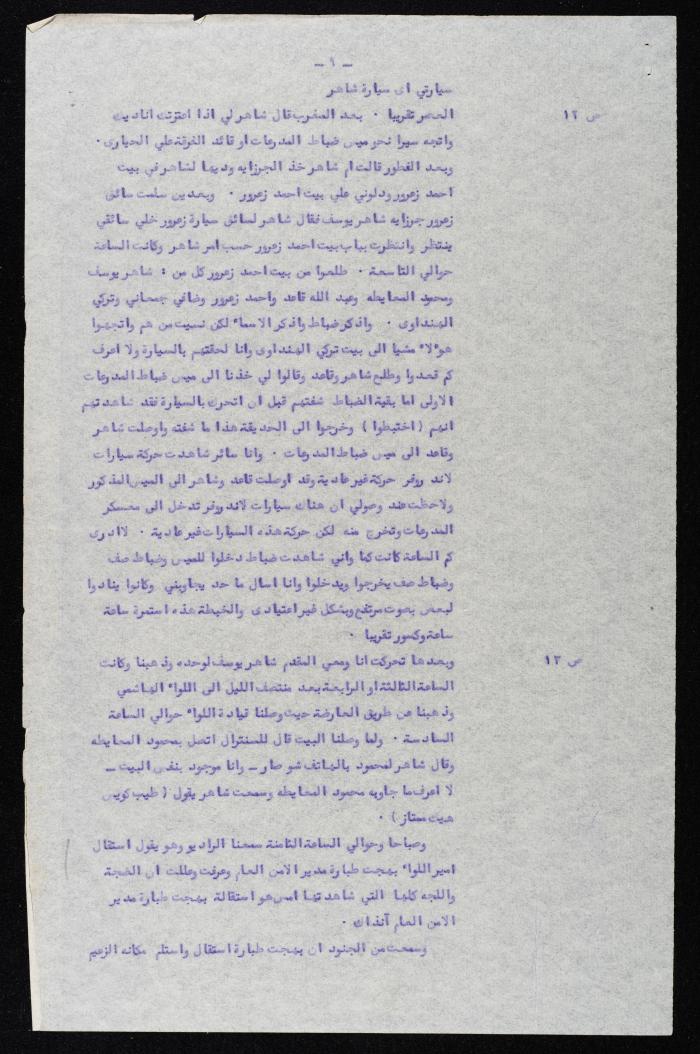 - ١ -
سيارتي اى سيارة شاهر
ص ١٢
العصر تقريبا . بعد المغرب قال شاهر لي اذا اعتزتك اناديك
واتجه سيرا نحو ميس ضباط المدرعات او قائد الفرقة علي الحيارى .
وبعد الفطور قالت ام شاهر خذ الجرزايه وديها لشاهر في بيت
احمد زعرور ودلوني علي بيت احمد زعرور . وبعدين سلمت سائق
زعرور جرزايه شاهر يوسف فقال شاهر لسائق سيارة زعرور خلي سائقي
ينتظر وانتظرت بباب بيت احمد زعرور حسب امر شاهر وكانت الساعة
حوالي التاسعة . طلعوا من بيت احمد زعرور كل من : شاهر يوسف
ومحمود المعايطه وعبد الله قاعد واحمد زعرور وضافي جمعاني وتركي
الهنداوى . واذكر ضباط واذكر الاسماء لكن نسيت من هم واتجهوا
هولاء مشيا الى بيت تركي الهنداوى وانا لحقتهم بالسيارة ولا اعرف
كم قعدوا وطلع شاهر وقاعد وقالوا لي خذنا الى ميس ضباط المدرعات
الاولى اما بقية الضباط شفتهم قبل ان اتحرك بالسيارة فقد شاهدتهم
انهم ( اختبطوا ) وخرجوا الى الحديقة هذا ما شفته واوصلت شاهر
وقاعد الى ميس ضباط المدرعات . وانا سائر شاهدت حركة سيارات
لاند روفر حركة غير عادية وقد اوصلت قاعد وشاهر الى الميس المذكور
ولاحظت عند وصولي ان هناك سيارات لاند روفر تدخل الى معسكر
المدرعات وتخرج منه لكن حركة هذه السيارات غير عادية . لا ادرى
كم الساعة كانت كما واني شاهدت ضباط دخلوا للميس وضباط صف
وضباط صف يخرجوا ويدخلوا وانا اسال ما حد يجاوبني وكانوا ينادوا
لبعض بصوت مرتفع وبشكل غير اعتيادى والخبطة هذه استمرة ساعة
ساعة وكسور تقريبا .
ص ١٣
وبعدها تحركت انا ومعي المقدم شاهر يوسف لوحده وذهبنا وكانت
الساعة الثالثة او الرابعة بعد منتصف الليل الى اللواء الهاشمي
وذهبنا عن طريق العارضة حيث وصلنا قيادة اللواء حوالي الساعة
السادسة . ولما وصلنا البيت قال للسنترال اتصل بمحمود المعايطه
وقال شاهر لمحمود بالهاتف شو صار - وانا موجود بنفس البيت -
لا اعرف ما جاوبه محمود المعايطه وسمعت شاهر يقول ( طيب كويس
هيك ممتاز ) .
وصباحا وحوالي الساعة الثامنة سمعنا الراديو وهو يقول استقال
امير اللواء بهجت طبارة مدير الامن العام وعرفت وعللت ان الضجة
واللجه كلها التي شاهدتها امس هو استقالة بهجت طبارة مدير
الامن العام آنذاك .
وسمعت من الجنود ان بهجت طبارة استقال واستلم مكانه الزعيم